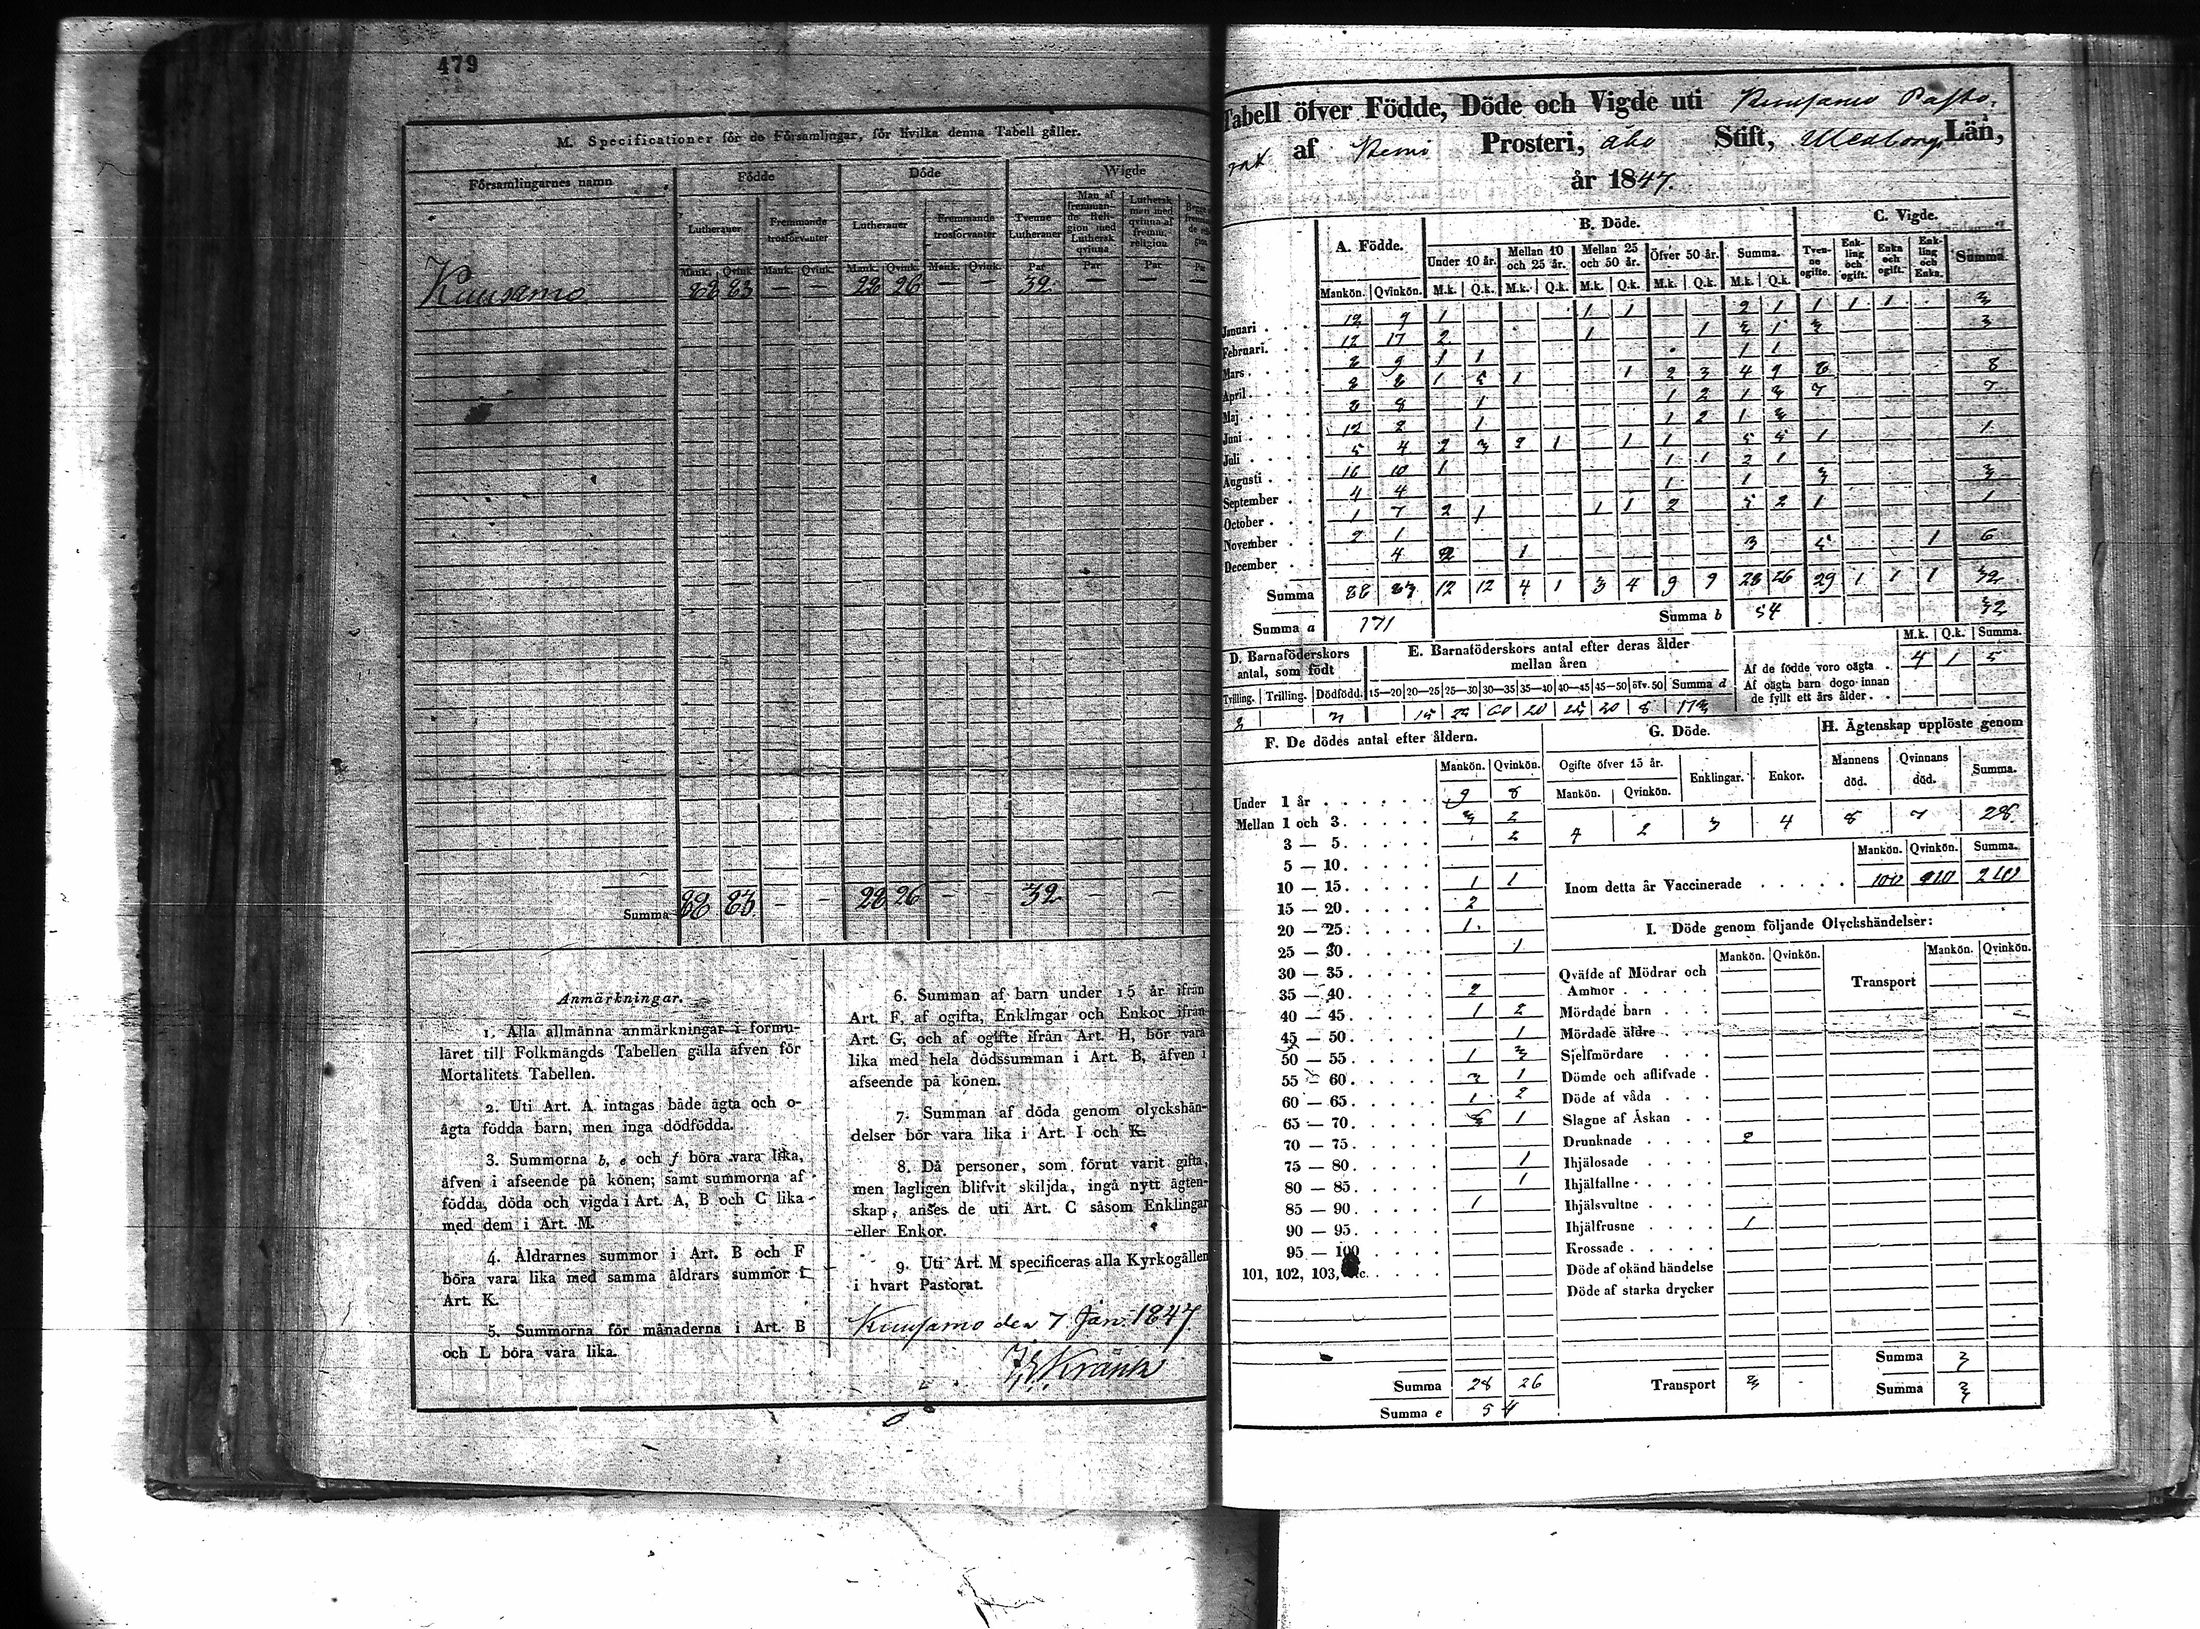 479
M. Specificationer för de Församlingar, för hvilka denna Tabell gäller.
Församlingarnes namn
Födde
Döde
Wigde
Lutheraner
Fremmande trosförvanter
Lutheraner
Fremmande trosförvanter
Tvenne Lutheraner
Man af fremmande Religion med Luthersk qvinna
Luthersk man med qvinna af fremm. religion
Mank. Qvink. Mank. Qvink. Mank. Qvink. Mank. Qvink. Par Par Par Par
Kuusamo 88 83 — — 28 26 — — 32 — — —
Summa 88 83 — — 28 26 — — 32 — — —
Anmärkningar.
1. Alla allmänna anmärkningar i formu-
läret till Folkmängds Tabellen gälla äfven för
Mortalitets Tabellen.
2. Uti Art. A intagas både ägta och o-
ägta födda barn, men inga dödfödda.
3. Summorna b, e och f böra vara lika,
äfven i afseende på könen; samt summorna af
födda, döda och vigda i Art. A, B och C lika
med dem i Art. M.
4. Åldrarnes summor i Art. B och F
böra vara lika med samma åldrars summor i
Art. K.
5. Summorna för månaderna i Art. B
och L böra vara lika.
6. Summan af barn under 15 år ifrån
Art. F, af ogifta, Enklingar och Enkor ifrån
Art. G, och af ogifte ifrån Art. H, bör vara
lika med hela dödssumman i Art. B, äfven i
afseende på könen.
7. Summan af döda genom olyckshän-
delser bör vara lika i Art. I och K.
8. Då personer, som förut varit gifta,
men lagligen blifvit skiljda, ingå nytt ägten-
skap, anses de uti Art. C såsom Enklingar
eller Enkor.
9. Uti Art. M specificeras alla Kyrkogällen
i hvart Pastorat.
Kuusamo den 7 Jan. 1847
Tabell öfver Födde, Döde och Vigde uti Kuusamo Pasto-
rat af Kemi Prosteri, Åbo Stift, Uleåborgs Län,
år 1847.
A. Födde.
B. Döde.
C. Vigde.
Under 10 år. Mellan 10 och 25 år. Mellan 25 och 50 år. Öfver 50 år. Summa.
Tvenne ogifte. Enkling och ogift. Enka och ogift. Enkling och Enka. Summa
Mankön. Qvinkön. M.k. Q.k. M.k. Q.k. M.k. Q.k. M.k. Q.k. M.k. Q.k.
Januari 12 9 1 1 1 2 1 1 1 1 3
Februari 12 17 2 1 1 3 1 3 3
Mars 8 9 1 1 1 1
April 8 8 1 5 1 1 2 3 4 9 8 8
Maj 8 8 1 1 2 1 3 7 7
Juni 12 2 1 1 2 1 3
Juli 5 4 2 3 2 1 1 1 5 5 1 1
Augusti 16 10 1 1 1 2 1
September 4 4 1 1 3 3
October 1 7 2 1 1 1 2 5 2 1 1
November 2 1
December 4 2 1 3 5 1 6
Summa 88 83 12 12 4 1 3 4 9 9 28 26 29 1 1 1 32
Summa a 171 Summa b 54 32
D. Barnaföderskors antal, som födt
E. Barnaföderskors antal efter deras ålder mellan åren
M.k. Q.k. Summa.
Af de födde voro oägta 4 1 5
Af oägta barn dogo innan
de fyllt ett års ålder
Tvilling. Trilling. Dödfödd. 15—20 20—25 25—30 30—35 35—40 40—45 45—50 öfv. 50 Summa d
F. De dödes antal efter åldern.
G. Döde.
H. Ägtenskap upplöste genom
Mankön. Qvinkön.
Ogifte öfver 15 år. Enklingar. Enkor. Mannens död. Qvinnans död. Summa.
Mankön. Qvinkön.
4 2 3 4 8 7
Under 1 år 9 8
Mellan 1 och 3 3 2
3 — 5 2
5 — 10
10 — 15 1 1
15 — 20 2
20 — 25 1
25 — 30 1
30 — 35
35 — 40 2
40 — 45 1 2
45 — 50 1
50 — 55 1 3
55 — 60 3 1
60 — 65 1 2
65 — 70 3 1
70 — 75
75 — 80 1
80 — 85 1
85 — 90 1
90 — 95
95 — 100
101, 102, 103,
Summa 28 26
Summa e 54
Mankön. Qvinkön. Summa.
Inom detta år Vaccinerade 100 110 210
I. Döde genom följande Olyckshändelser:
Mankön. Qvinkön. Mankön. Qvinkön.
Qväfde af Mödrar och
Ammor
Transport
Mördade barn
Mördade äldre
Sjelfmördare
Dömde och aflifvade
Döde af våda
Slagne af Åskan
Drunknade 2
Ihjälosade
Ihjälfallne
Ihjälsvultne
Ihjälfrusne 1
Krossade
Döde af okänd händelse
Döde af starka drycker
Summa 3
Transport 3 Summa 3